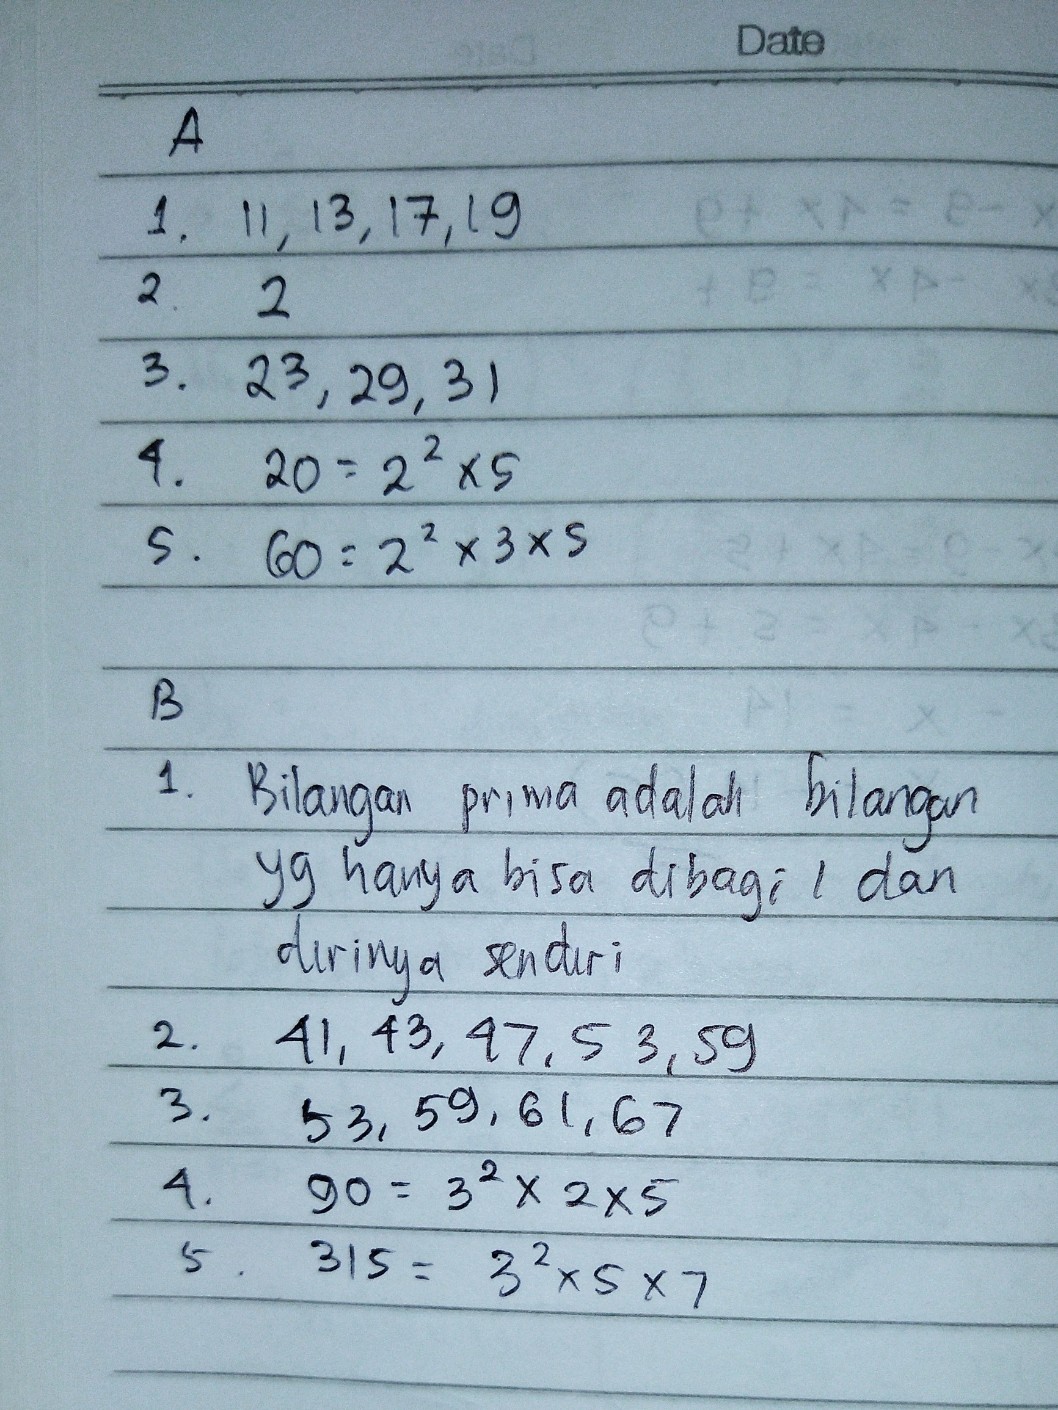 Date
A
1. 11, 13, 17, 19
2. 2
3. 23, 29, 31
4. 20 = 2² × 5
5. 60 = 2² × 3 × 5
B
1. Bilangan prima adalah bilangan
yg hanya bisa dibagi 1 dan
dirinya sendiri
2. 41, 43, 47, 53, 59
3. 53, 59, 61, 67
4. 90 = 3² × 2 × 5
5. 315 = 3² × 5 × 7